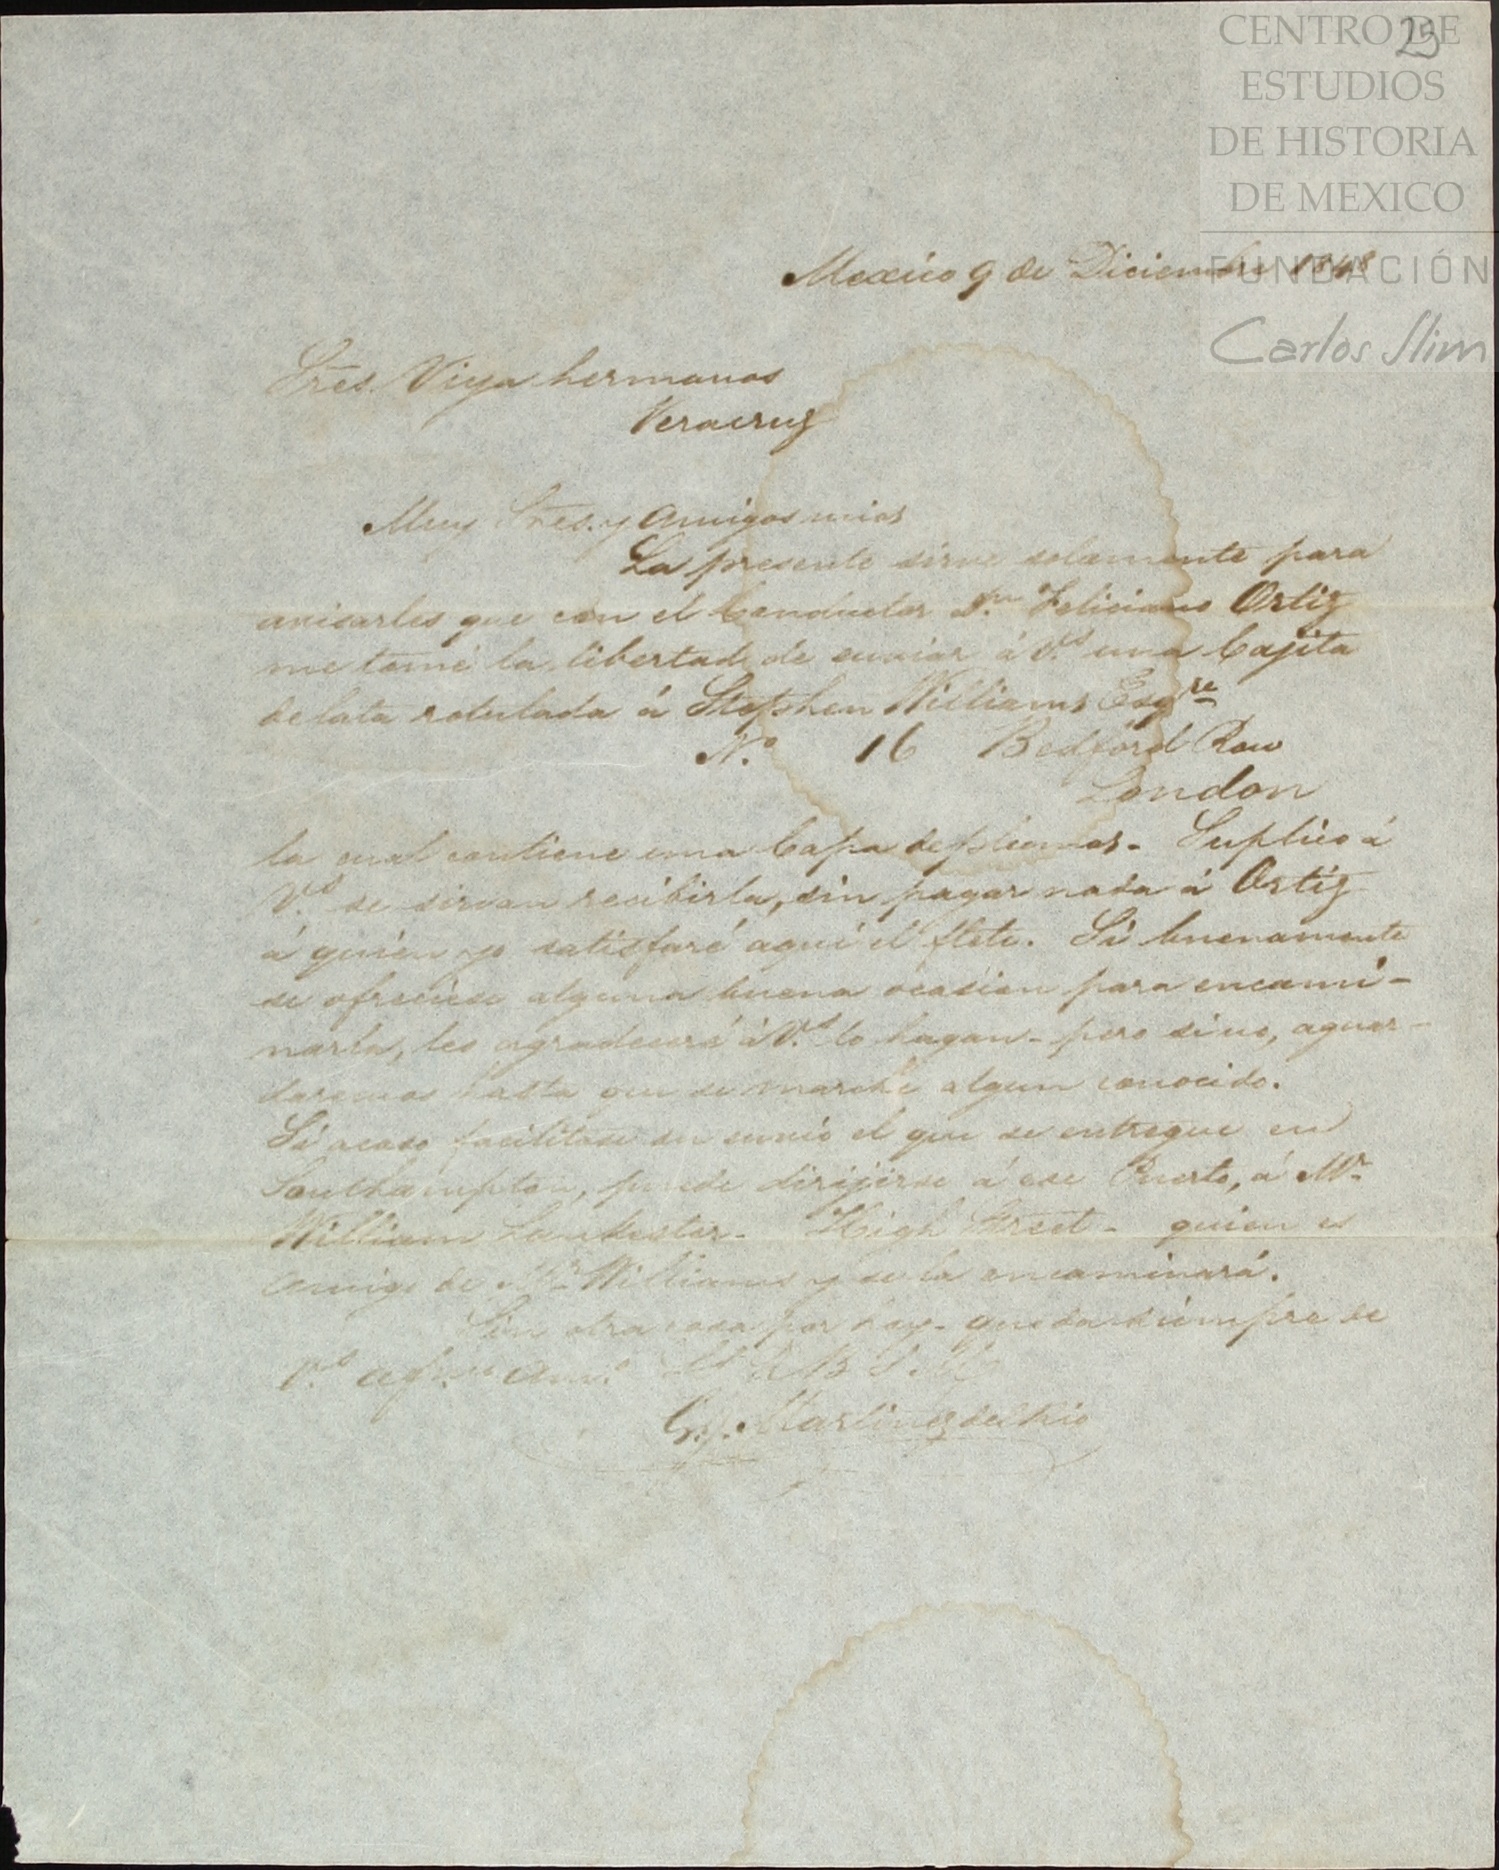 CENTRO DE
ESTUDIOS
DE HISTORIA
DE MEXICO
FUNDACIÓN
Carlos Slim
25
Mexico 9 de Diciembre 1848
Sres. Viya hermanos
Veracruz
Muy Sres. y amigos mios
La presente sirve solamente para
avisarles que con el Conductor Dn. Feliciano Ortiz
me tomé la libertad de enviar á Vs. una Cajita
de lata rotulada á Stephen Williams Esqre
No. 16 Bedford Row
London
la cual contiene una Capa de plumas. Suplico á
Vs. se sirvan recibirla, sin pagar nada á Ortiz
á quien yo satisfaré aqui el flete. Si buenamente
se ofreciese alguna buena ocasion para encami-
narla, les agradeceré á Vs. lo hagan - pero sino, aguar-
daremos hasta que se marche algun conocido.
Si acaso facilitase su envio el que se entregue en
Southampton, puede dirijirse á ese Puerto, á Mr.
William - High Street - quien es
amigo de Mr. Williams y se la encaminará.
Sin otra cosa por hoy - quedar siempre de
Vs. afmo. amo. B S M
G. Martinez del Rio